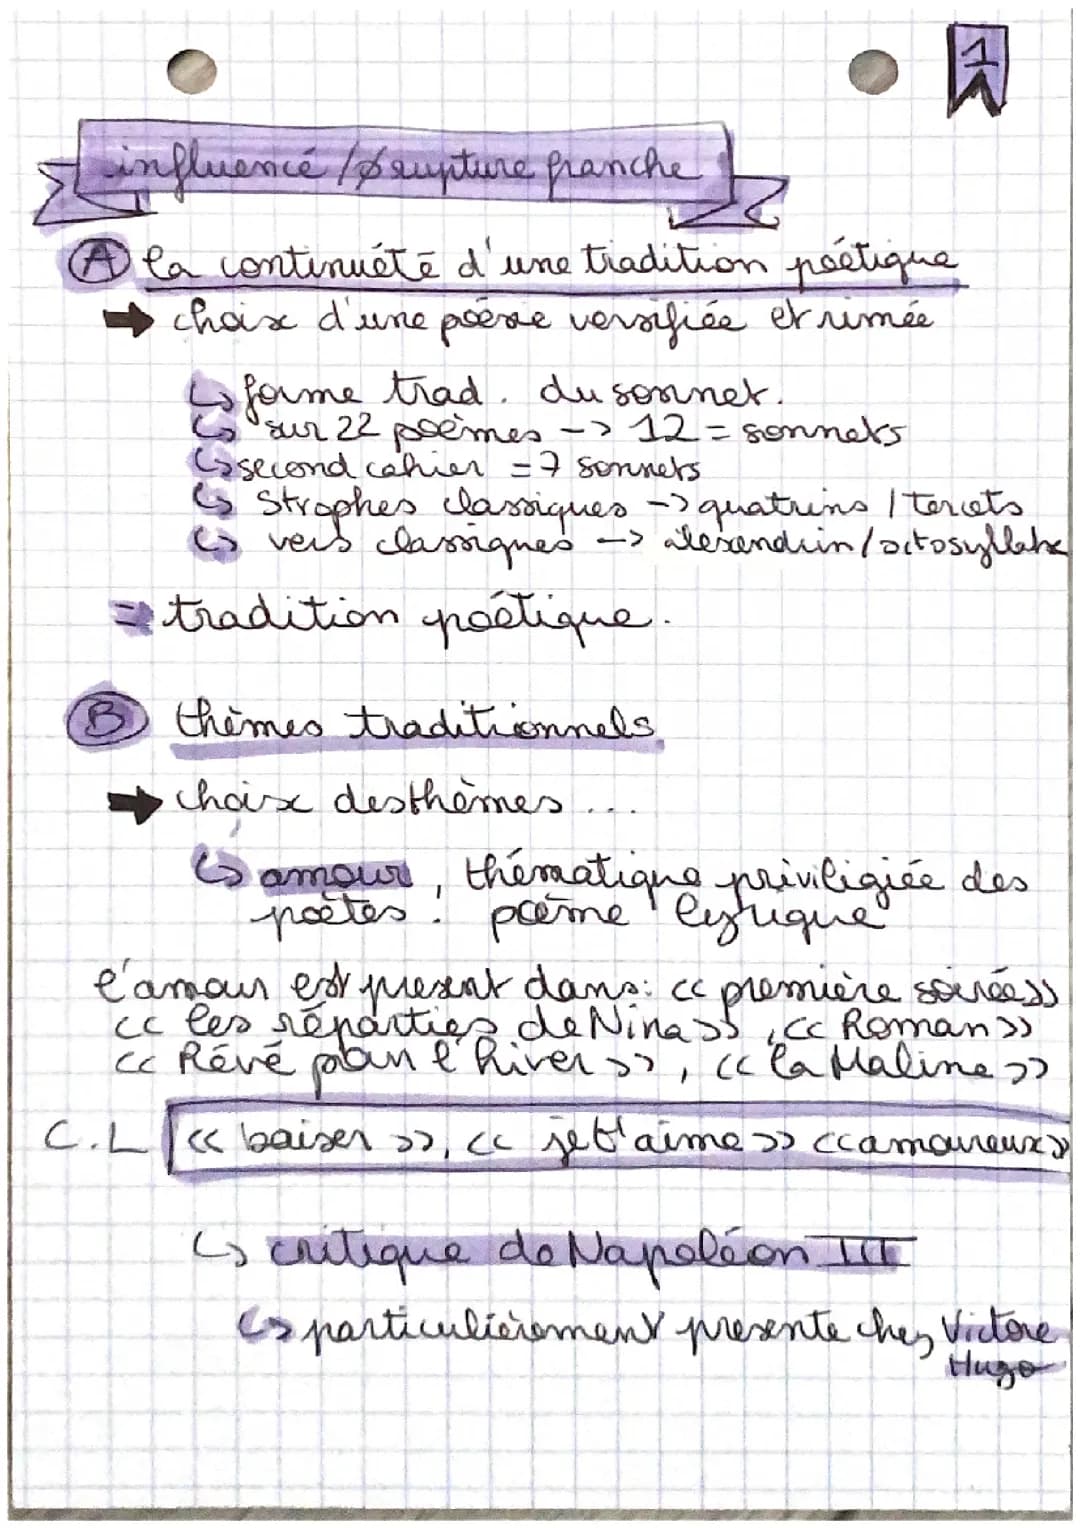 1
influencé / ø rupture franche
A la continuété d'une tradition poétique
➡ choix d'une poésie versifiée et rimée
↳ forme trad. du sonnet.
↳ sur 22 poèmes -> 12 = sonnets
↳ second cahier = 7 sonnets
↳ Strophes classiques -> quatrins / tercets
↳ vers classiques -> alexendrin / octosyllabe
= tradition poétique.
B thèmes traditionnels
➡ choix des thèmes ...
↳ amour, thématique priviligiée des
poètes : poème lyrique
l'amour est present dans: << première soirée>>
<< les réparties de Nina >>, << Roman >>
<< Rêvé pour l'hiver >>, << la Maline >>
C.L << baiser >>, << je t'aime >> <<amoureux>>
↳ critique de Napoléon III
↳ particulièrement presente chez Victore
Hugo